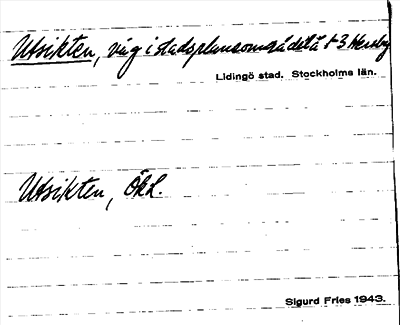 Utsikten, väg i stadsplaneområdet å 1-3 Hersby
Lidingö stad. Stockholms län.
Utsikten, ÖhL.
Sigurd Fries 1943.